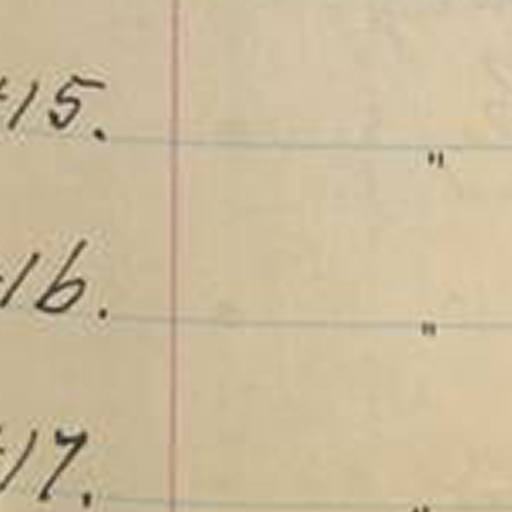 15. "
16. "
17. "